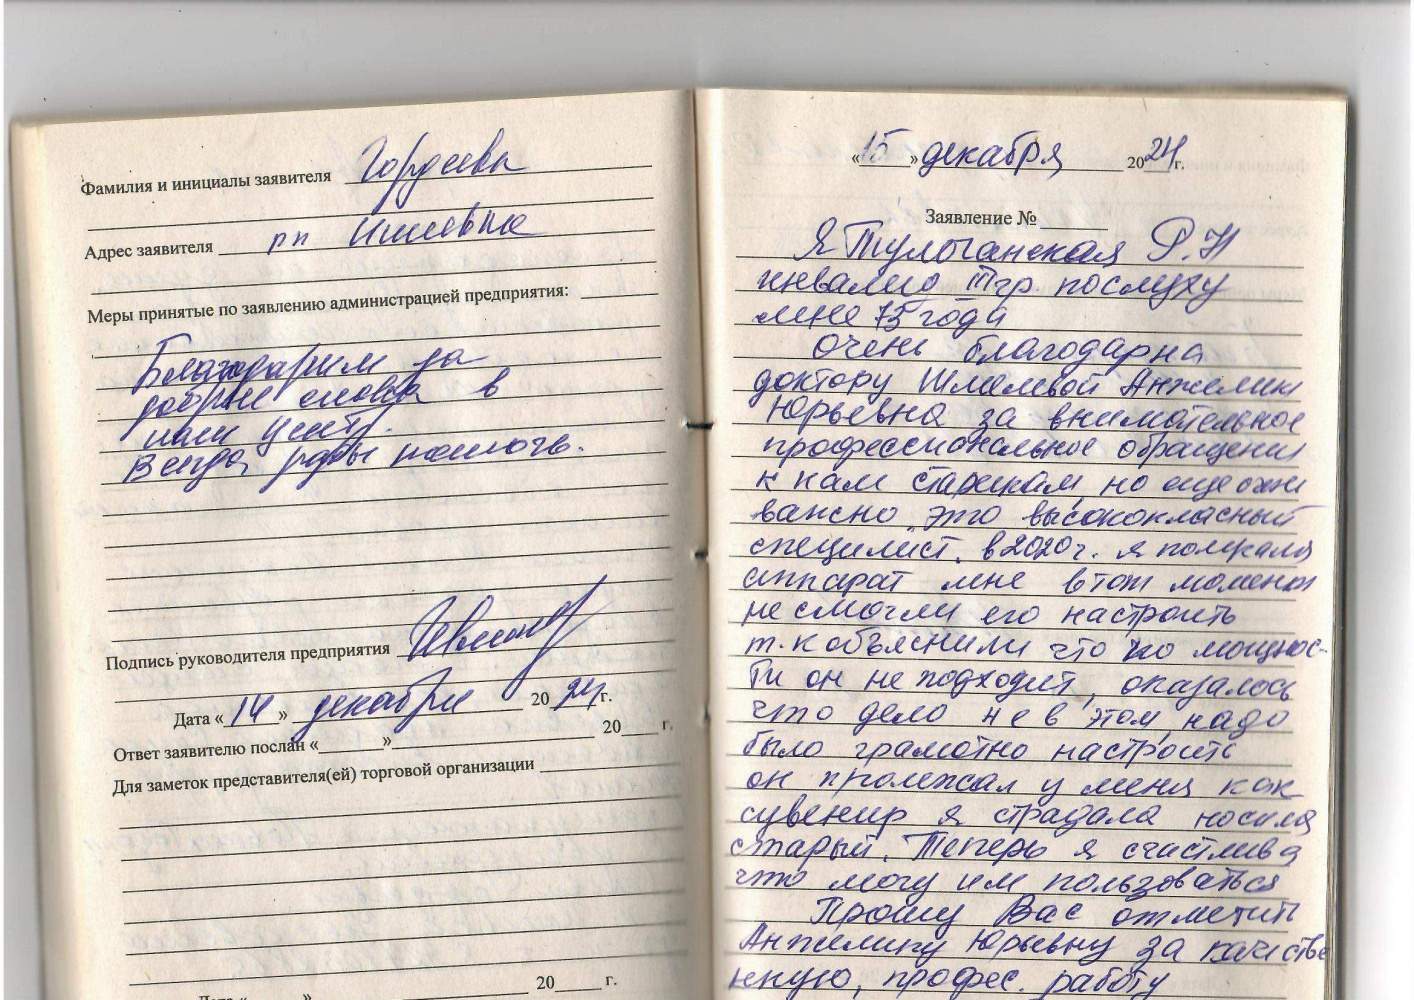 Фамилия и инициалы заявителя Гордеева
Адрес заявителя рп
Меры принятые по заявлению администрацией предприятия:
Благодарим за
добрые слова в
наш центр.
Всегда рады помочь.
Подпись руководителя предприятия
Дата « 14 » декабря 20 24 г.
Ответ заявителю послан « » 20 г.
Для заметок представителя(ей) торговой организации
Дата « » 20 г.
« 15 » декабря 20 24 г.
Заявление №
Я Тулоганская Р.Н
инвалид III гр по слуху
мне 75 года
Очень благодарна
доктору Шмелевой Анжелик
Юрьевна за внимательное
профессиональное обращении
к нам старикам, но еще очен
важно это высококласный
специлист. в 2020 г. я получала
аппарат мне в тот момент
не смогли его настроить
т.к объяснили что по мощнос-
ти он не подходит, оказалось
что дело не в этом, надо
было грамотно настроить
он пролежал у меня как
сувенир я страдала носила
старый. Теперь я счастлива
что могу им пользоваться
Прошу Вас отметить
Анжелику Юрьевну за качестве
нную, профес. работу